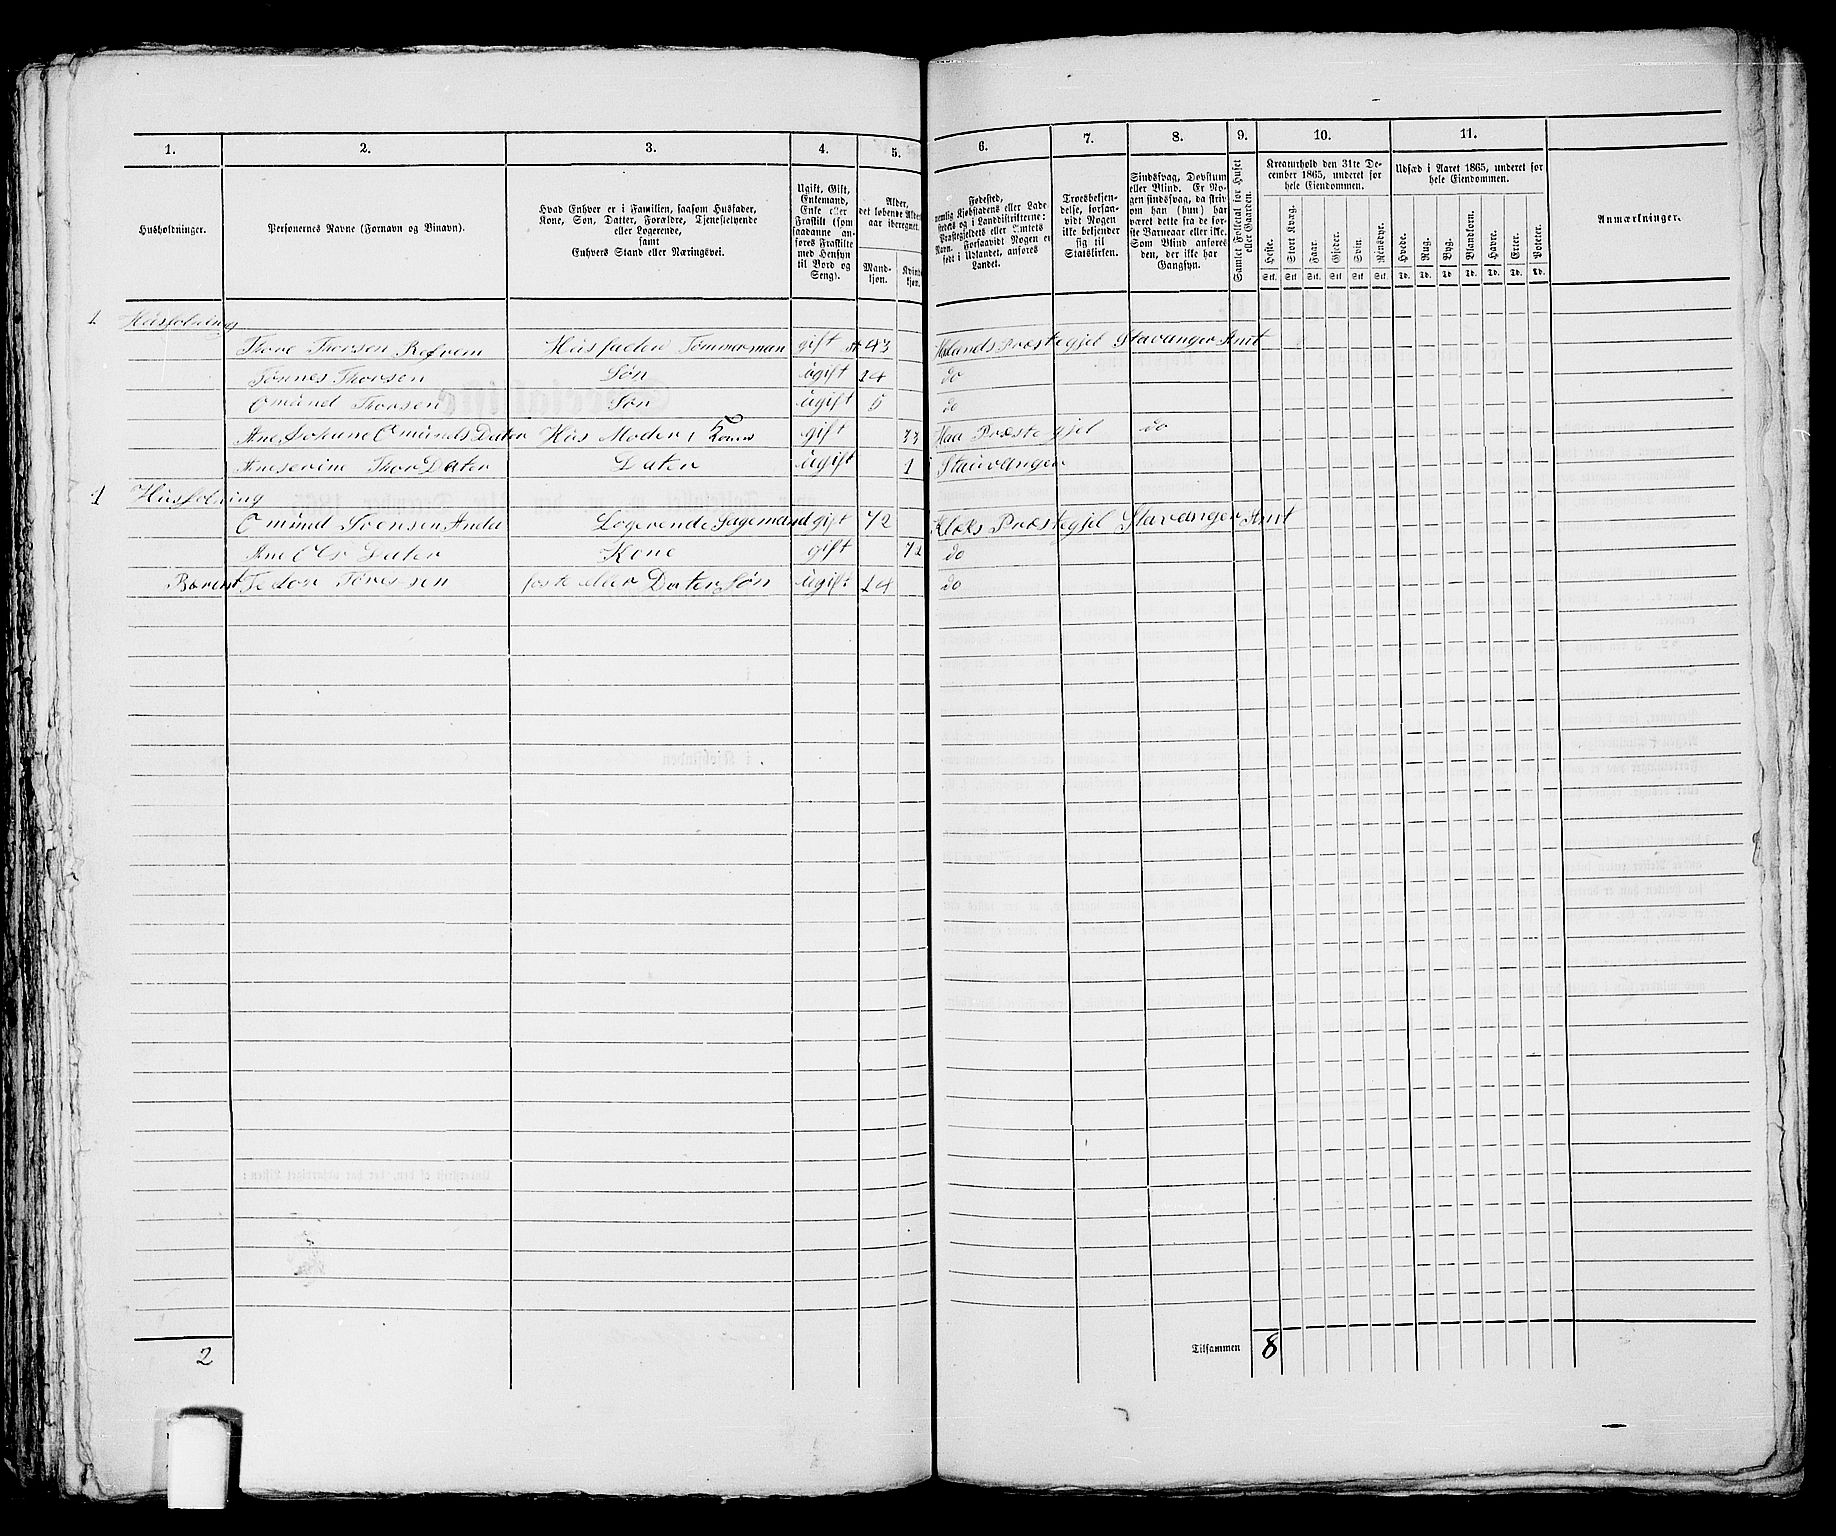 1. 2. 3. 4. 5. 6. 7. 8. 9. 10. 11.
Husholdninger.
Personernes Navne (Fornavn og Binavn).
Hvad Enhver er i Familien, saasom Husfader,
Kone, Søn, Datter, Forældre, Tjenestetyende
eller Logerende,
samt
Enhvers Stand eller Næringsvei.
Ugift, Gift,
Enkemand,
Enke eller
Fraskilt (som
saadanne an-
føres Fraskilte
med Hensyn
til Bord og
Seng).
Alder,
det løbende Alders-
aar iberegnet.
Mand-
kjøn.
Kvinde-
kjøn.
Fødested,
nemlig Kjøbstadens eller Lade-
stedets og i Landdistrikterne:
Præstegjeldets eller Amtets
Navn. Forsaavidt Nogen er
født i Udlandet, anføres
Landet.
Troesbekjen-
delse, forsaa-
vidt Nogen
ikke bekjender
sig til
Statskirken.
Sindssvag, Døvstum
eller Blind. Er No-
gen sindssvag, da skriv
om han (hun) har
været dette fra de før-
ste Barneaar eller ikke.
Som Blind anføres
den, der ikke har
Gangsyn.
Samlet Folketal for Huset
eller Gaarden.
Kreaturhold den 31te De-
cember 1865, underet for
hele Eiendommen.
Heste. Stort Kvæg. Faar. Gjeder. Svin. Rensdyr.
Stk. Stk. Stk. Stk. Stk. Stk.
Udsæd i Aaret 1865, underet for
hele Eiendommen.
Hvede. Rug. Byg. Blandkorn. Havre. Erter. Poteter.
Td. Td. Td. Td. Td. Td. Td.
Anmærkninger.
1 Husfolning
Thore Thorsen Refvem Husfader Tømmerman gift 43 Hølands Præstegjel Stavanger Amt
Tønnes Thorsen Søn ugift 14 do
Omund Thorsen Søn ugift 5 do
Ane Johane Omunds Dater Hus Moder Kone gift 33 Haa Præstegjel do
Aneserine Thor Dater Dater ugift 1 Stauvanger
1 Husfolning
Omund Svensen Logerende Sagemand gift 72 Klæks Præstegjel Stavanger Amt
Ane Ols Dater Kone gift 72 do
Bærent Tedor Tøressen Dater Søn ugift 14 do
2 Tilsammen 8